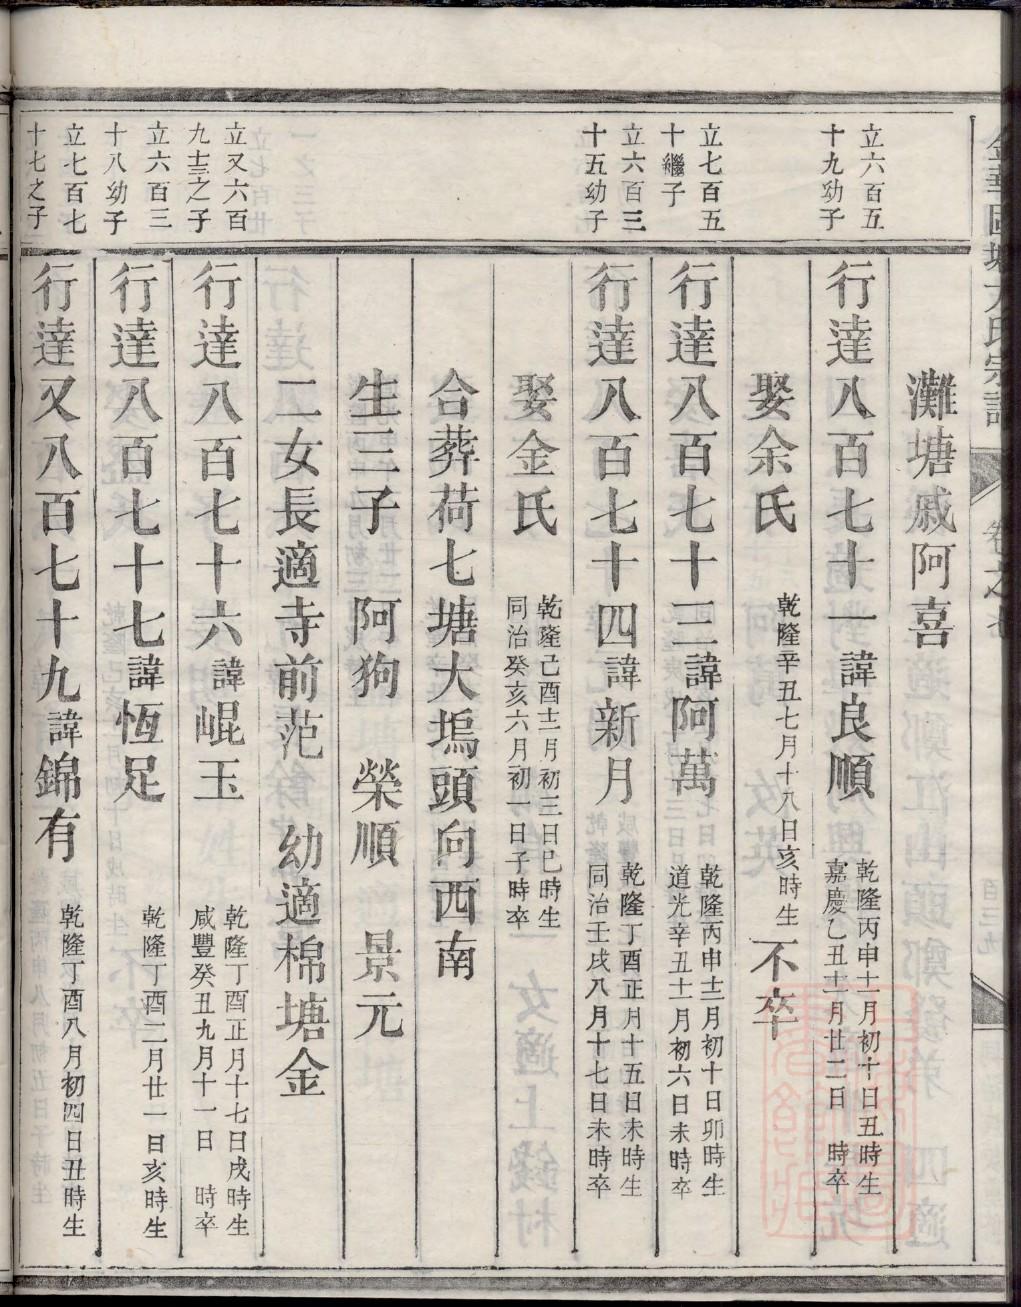 灘塘戚阿喜
立六百五
十九幼子
行達八百七十一諱良順
乾隆丙申十一月初十日丑時生
嘉慶乙丑十二月廿二日　時卒
娶余氏
乾隆辛丑七月十八日亥時生
不卒
立七百五
十繼子
行達八百七十二諱阿萬
乾隆丙申十二月初十日卯時生
道光辛丑十一月初六日未時卒
立六百三
十五幼子
行達八百七十四諱新月
乾隆丁酉正月十五日未時生
同治壬戌八月十七日未時卒
娶金氏
乾隆己酉十二月初三日巳時生
同治癸亥六月初一日子時卒
合葬荷七塘大塢頭向西南
生三子　阿狗　榮順　景元
二女長適寺前范　幼適棉塘金
立又六百
九十三之子
行達八百七十六諱崐玉
乾隆丁酉正月十七日戌時生
咸豐癸丑九月十一日　時卒
立六百三
十八幼子
行達八百七十七諱恆足
乾隆丁酉二月廿一日亥時生
立七百七
十七之子
行達又八百七十九諱錦有
乾隆丁酉八月初四日丑時生